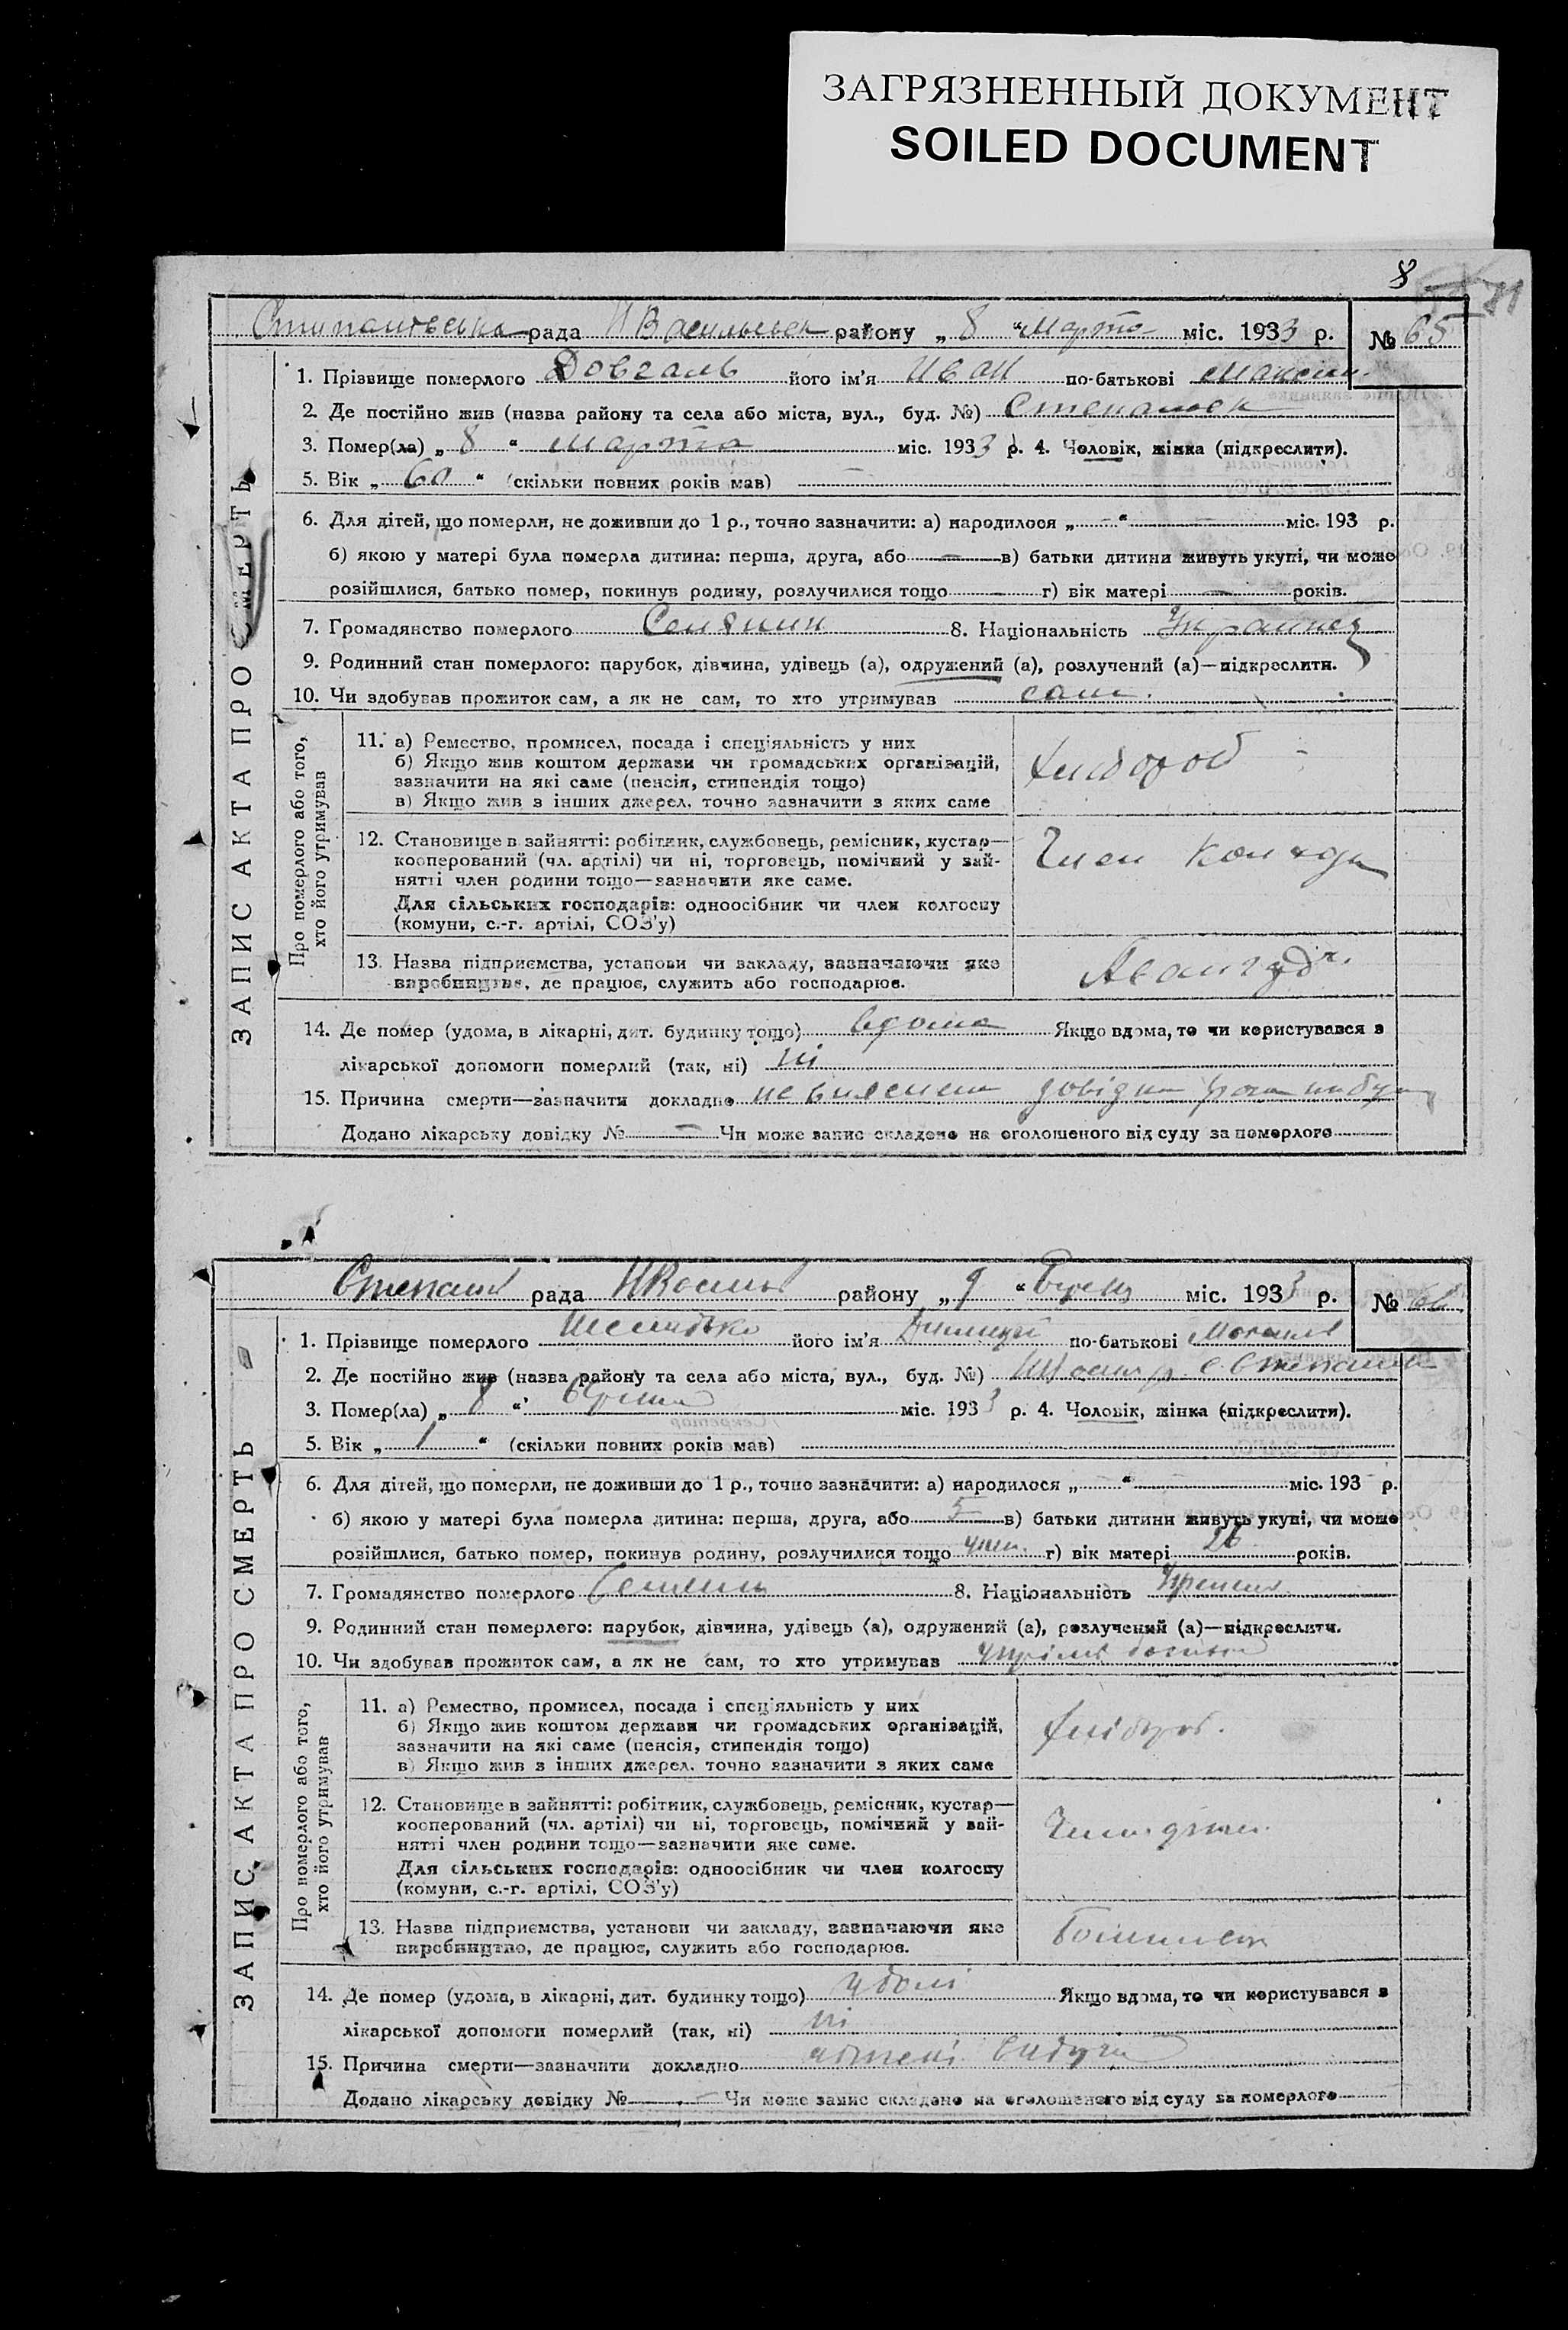 ЗАГРЯЗНЕННЫЙ ДОКУМЕНТ
SOILED DOCUMENT
8
ЗАПИС АКТА ПРО СМЕРТЬ
рада району „8“ Марта міс. 1933 р. № 65
1. Прізвище померлого Довгаль його ім’я Иван по-батькові Максим.
2. Де постійно жив (назва району та села або міста, вул., буд. №)
3. Помер(ла) „8“ марта міс. 1933 р. 4. Чоловік, жінка (підкреслити).
5. Вік „60“ (скільки повних років мав) —
6. Для дітей, що померли, не доживши до 1 р., точно зазначити: а) народилося „—“ — міс. 193 р.
б) якою у матері була померла дитина: перша, друга, або — в) батьки дитини живуть укупі, чи може
розійшлися, батько помер, покинув родину, розлучилися тощо — г) вік матері — років.
7. Громадянство померлого Селянин 8. Національність Украинец
9. Родинний стан померлого: парубок, дівчина, удівець (а), одружений (а), розлучений (а)—підкреслити.
10. Чи здобував прожиток сам, а як не сам, то хто утримував сам.
Про померлого або того,
хто його утримував
11. а) Ремество, промисел, посада і спеціяльність у них
б) Якщо жив коштом держави чи громадських організацій,
зазначити на які саме (пенсія, стипендія тощо)
в) Якщо жив з інших джерел, точно зазначити з яких саме
хлібороб
12. Становище в зайнятті: робітник, службовець, ремісник, кустар—
кооперований (чл. артілі) чи ні, торговець, помічний у зай-
нятті член родини тощо—зазначити яке саме.
Для сільських господарів: одноосібник чи член колгоспу
(комуни, с.-г. артілі, СОЗ’у)
Член
13. Назва підприємства, установи чи закладу, зазначаючи яке
виробництво, де працює, служить або господарює.
14. Де помер (удома, в лікарні, дит. будинку тощо) вдома Якщо вдома, то чи користувався з
лікарської допомоги померлий (так, ні) ні
15. Причина смерти—зазначити докладно
Додано лікарську довідку № — Чи може запис складено на оголошеного від суду за померлого
ЗАПИС АКТА ПРО СМЕРТЬ
рада району „9“ міс. 1933 р. №
1. Прізвище померлого його ім’я по-батькові
2. Де постійно жив (назва району та села або міста, вул., буд. №)
3. Помер(ла) „8“ міс. 1933 р. 4. Чоловік, жінка (підкреслити).
5. Вік „1“ (скільки повних років мав)
6. Для дітей, що померли, не доживши до 1 р., точно зазначити: а) народилося „—“ — міс. 193 р.
б) якою у матері була померла дитина: перша, друга, або 5 в) батьки дитини живуть укупі, чи може
розійшлися, батько помер, покинув родину, розлучилися тощо г) вік матері 26 років.
7. Громадянство померлого 8. Національність
9. Родинний стан померлого: парубок, дівчина, удівець (а), одружений (а), розлучений (а)—підкреслити.
10. Чи здобував прожиток сам, а як не сам, то хто утримував
Про померлого або того,
хто його утримував
11. а) Ремество, промисел, посада і спеціяльність у них
б) Якщо жив коштом держави чи громадських організацій,
зазначити на які саме (пенсія, стипендія тощо)
в) Якщо жив з інших джерел, точно зазначити з яких саме
хлібороб.
12. Становище в зайнятті: робітник, службовець, ремісник, кустар—
кооперований (чл. артілі) чи ні, торговець, помічний у зай-
нятті член родини тощо—зазначити яке саме.
Для сільських господарів: одноосібник чи член колгоспу
(комуни, с.-г. артілі, СОЗ’у)
13. Назва підприємства, установи чи закладу, зазначаючи яке
виробництво, де працює, служить або господарює.
14. Де помер (удома, в лікарні, дит. будинку тощо) Якщо вдома, то чи користувався з
лікарської допомоги померлий (так, ні) ні
15. Причина смерти—зазначити докладно
Додано лікарську довідку № — Чи може запис складено на оголошеного від суду за померлого